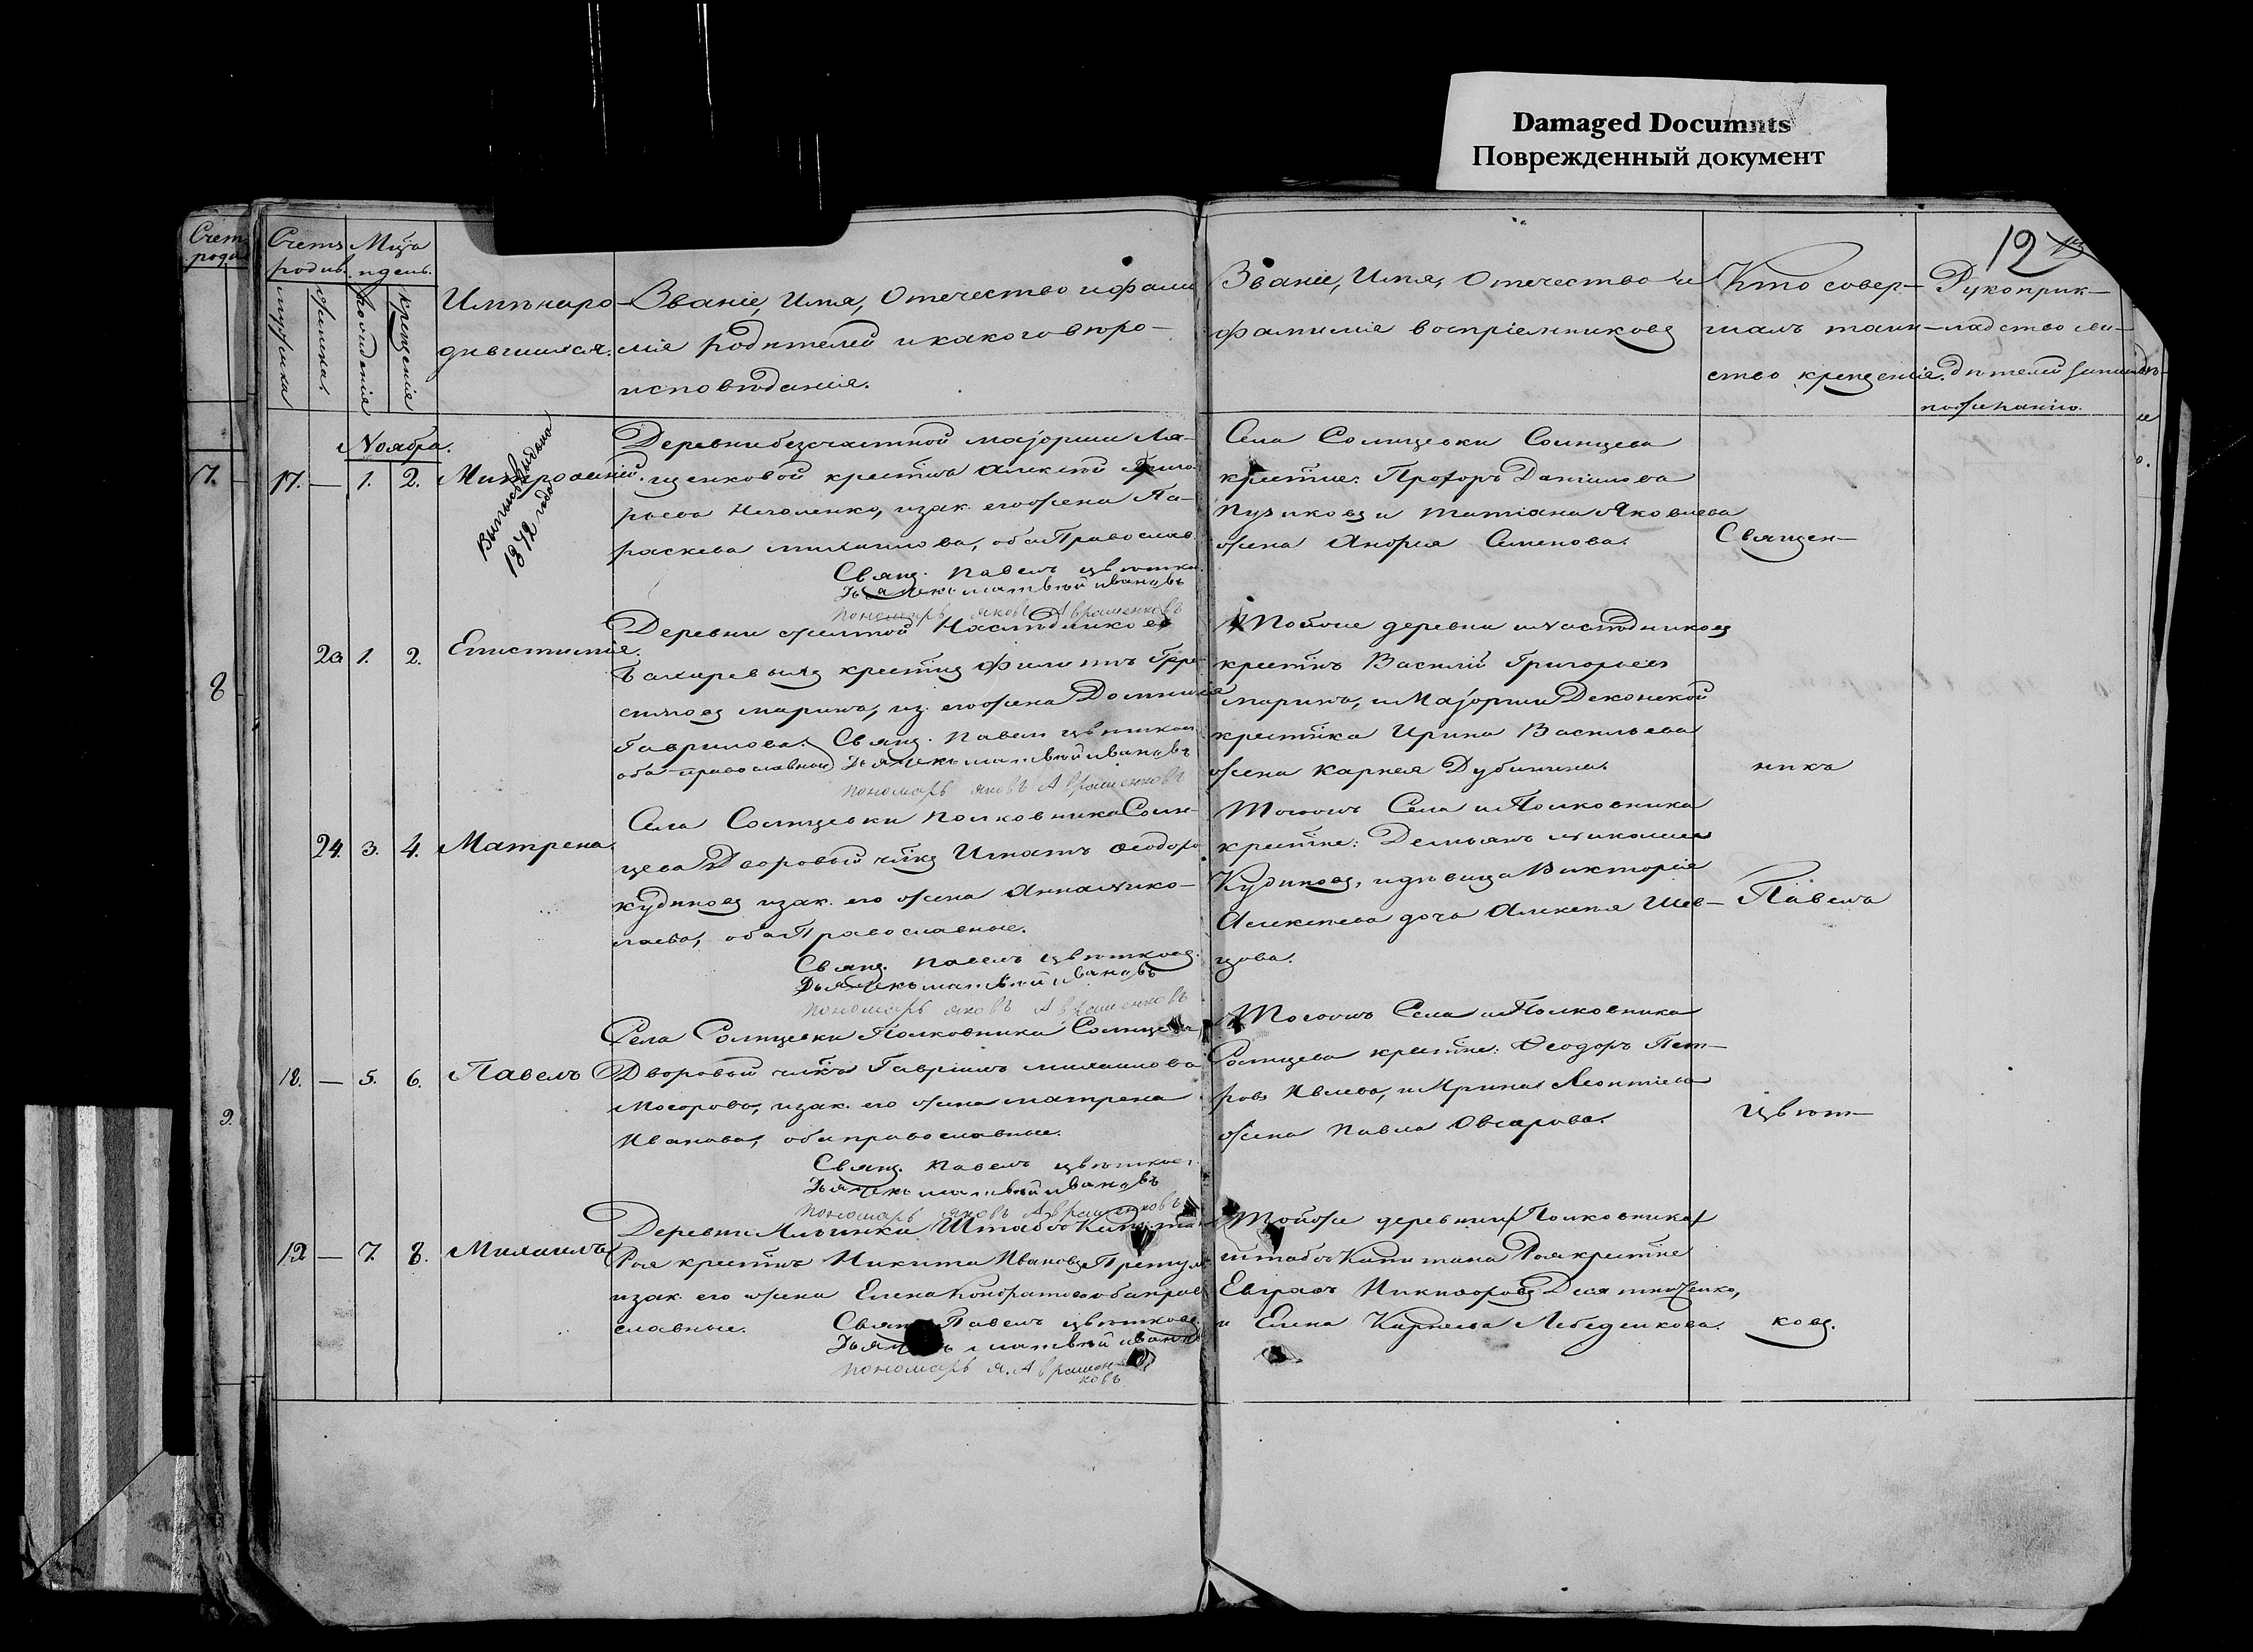 Damaged Documnts
Поврежденный документ
12
Счетъ
родив.
Мца
и день.
мужеска
женска.
рожденія
крещенія
Имѣна ро-
дившихся.
Званіе, Имя, Отечество и фами
лія родителей и какого вѣро-
исповѣданія.
Званіе, Имя, Отечество и
фамиліе воспріемниковъ
Кто совер-
шалъ таин-
ство крещенія.
Рукоприк-
ладство сви-
дѣтелей записи
по желанію.
Ноября.
выпись выдана
1872 года
17. — 1. 2. Митрофаній.
Деревни безсчастной маіорши Ля-
щенковой крестнъ Алексѣй Григо
рьевъ Николенко, изак. его жена Па-
раскева михаилова, оба Православ.
Свящ. Павелъ Цвѣтков
Дьячекъ матвѣй ивановъ
пономарь яковъ Авраменковъ
Села Солнцевки Солнцева
крестне: Прохоръ Даніилова
Пузиковъ и татіана Яковлева
жена Андрея Семенова.
Священ-
20 1. 2. Епистимія.
Деревни желтой Наслѣдниковъ
крестнъ Филиппъ
маринъ, из. его жена Домникія
Гаврилова. Свящ. Павелъ Цвѣтковъ
оба православные Дьячекъ матвѣй ивановъ
пономарь яковъ Авраменковъ
Тойже деревни и наслѣдниковъ
крестнъ Василій Григорьевъ
маринъ, и Маіорши Деконской
крестнка Ирина Васильева
жена Карнея Дубинина.
никъ
24. 3. 4. Матрена.
Села Солнцевки полковника Солн-
цева Дворовый члкъ Игнатъ Ѳеодоро
Кудиновъ изак. его жена Анна Нико-
лаева, оба Православные.
Свящ. Павелъ Цвѣтковъ.
Дьячекъ матвѣй ивановъ
пономарь яковъ Авраменковъ
Тогожъ Села и Полковника
крестне: Демьянъ Николаевъ
Кудиновъ, и дѣвица Викторія
Алексѣева дочь Алексѣя Шев-
цова.
Павелъ
18. — 5. 6. Павелъ
Села Солнцевки Полковника Солнцева
Дворовый члкъ Гавріилъ михаилова
Могорова, изак. его жена матрена
Иванова, оба православные.
Свящ. Павелъ Цвѣтковъ.
Дьячекъ матвѣй ивановъ
пономарь яковъ Авраменковъ
Тогожъ Села и Полковника
Солнцева крестне: Ѳеодоръ Пет-
ровъ Ивлева, и Ирина Леонтіева
жена Павла Овчарова.
Цвѣт-
19 — 7. 8. Михаилъ
Деревни Ильинки Штабсъ Капита
Роя крестнъ Никита Ивановъ
изак. его жена Елена Кондратова оба прав
славные. Свящ. Павелъ Цвѣтковъ
Дьячекъ матвѣй иванов
пономарь я. Авраменковъ
Тойже деревни Полковника
штабсъ Капитана Роя крестне
Евграфъ Никифоровъ Десятниченко,
и Елена Карнеева Лебеденкова.
ковъ.